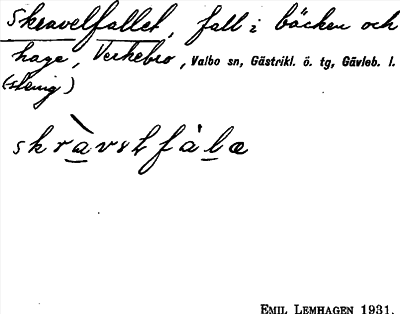 Skravelfallet, fall i bäcken och
hage, Verkebro, Valbo sn, Gästrikl. ö. tg, Gävleb. l.
(stenig)
skràvsɫfàlæ
EMIL LEMHAGEN 1931.